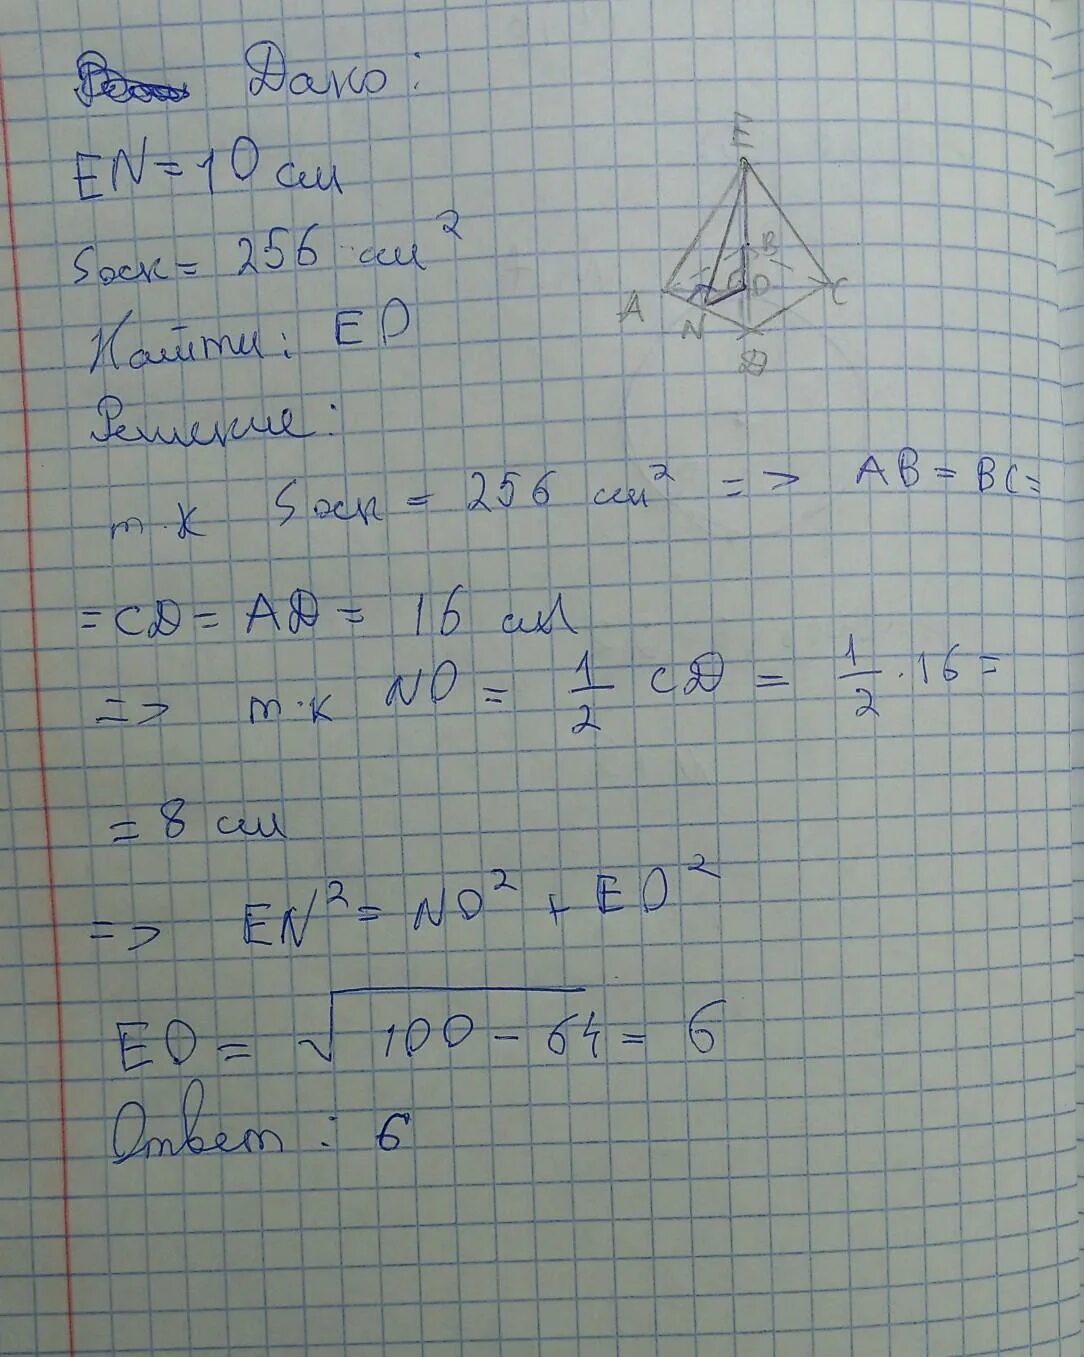 Дано:
EN = 10 см
Sосн = 256 см²
Найти: EO
Решение:
т.к Sосн = 256 см² => AB = BC =
= CD = AD = 16 см
=> т.к NO = 1/2 CD = 1/2 · 16 =
= 8 см
=> EN² = NO² + EO²
EO = √100 - 64 = 6
Ответ: 6
E
B
A
O
C
N
D